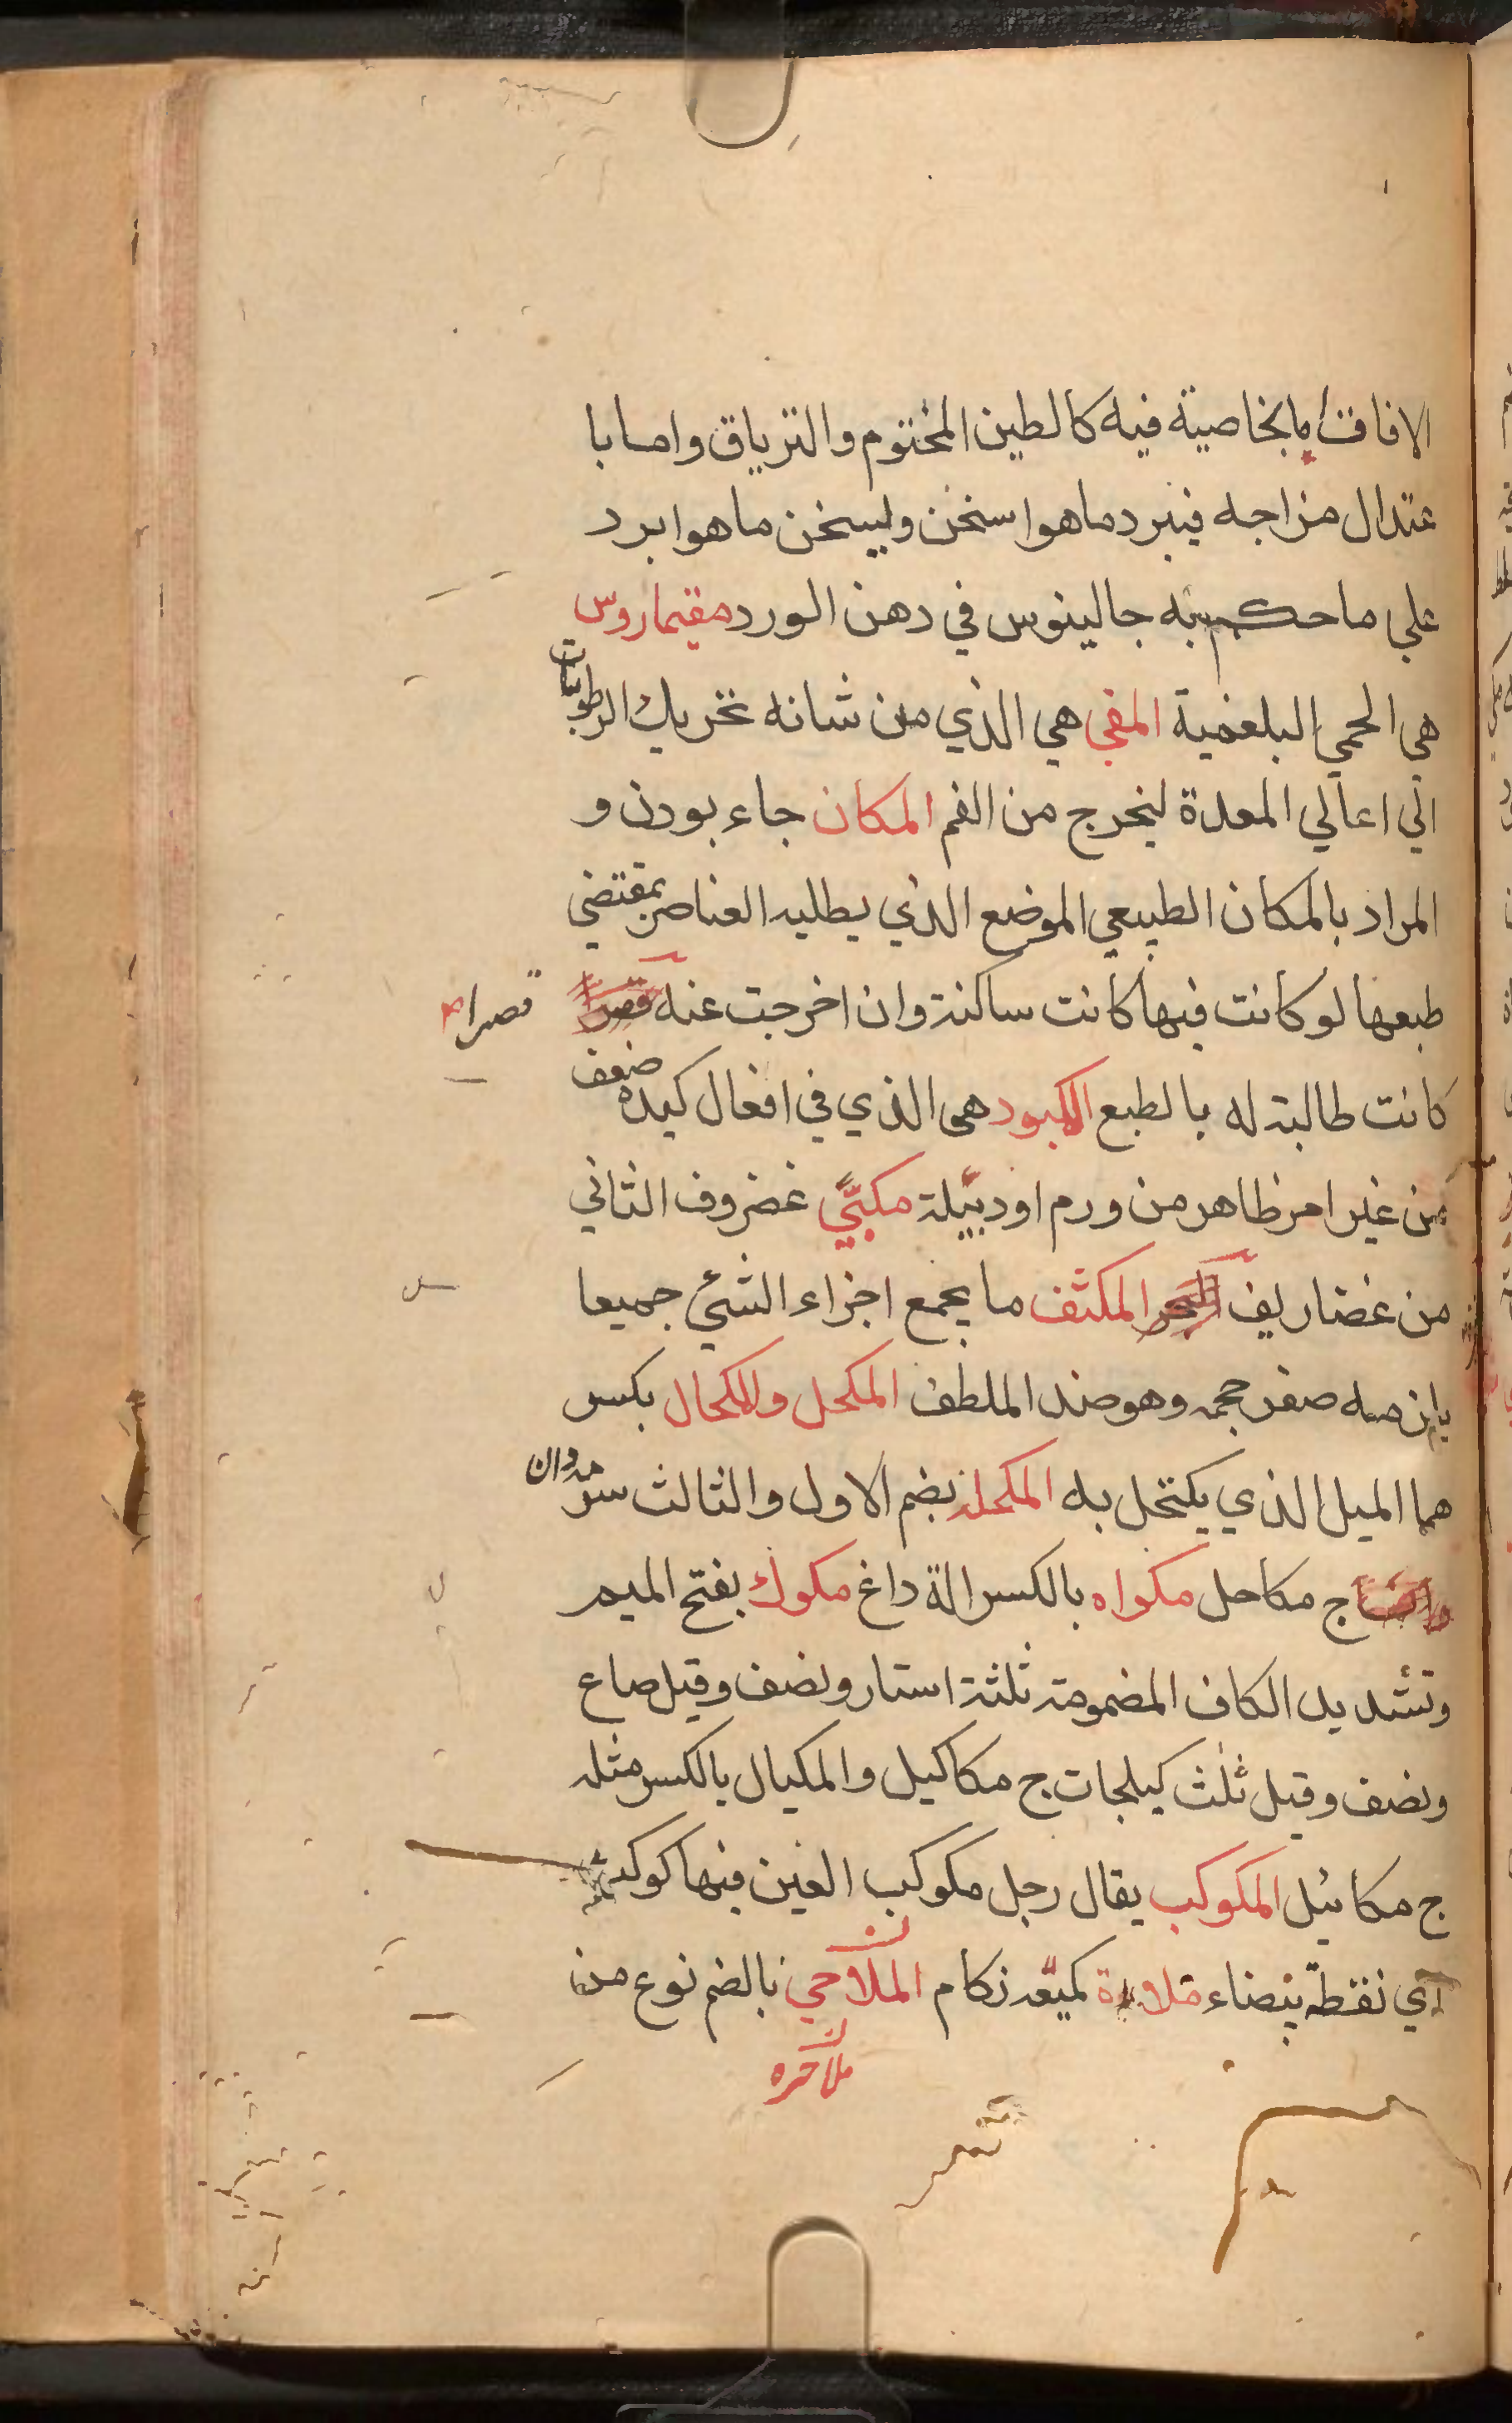 الافات اما بخاصية فيه كالطين المختوم والترياق واما با
عتدال مزاجه فيبرد ما هو اسخن ويسخن ما هو ابرد
علي ما حكم به جالينوس في دهن الورد مقيماروس
هي الحمي البلغمية المقي هي الذي من شانه تحريك الرطوبات
الي اعالي المعدة ليخرج من الفم المكان جاء بودن و
المراد بالمكان الطبيعي الموضع الذي يطلبه العناصر بمقتضي
طبعها لو كانت فيها كانت ساكنة وان اخرجت عنه قصرا
قصرا
كانت طالبة له بالطبع المكبود هي الذي في افعال كبده ضعف
من غير امر ظاهر من ورم او دبيلة مكبّي غضروف الثاني
من غضاريف المكثف ما يجمع اجزاء الشئ جميعا
صغر حجمه وهو ضد الملطف المكحل والمكحال بكسر
هما الميل الذي يكتحل به المكحلة بضم الاول والثالث سرمه دان
ج مكاحل مكواه بالكسر الة داغ مكوك بفتح الميم
وتشديد الكاف المضمومة ثلثة استار ونصف وقيل صاع
ونصف وقيل ثلث كيلجات ج مكاكيل والمكيال بالكسر مثله
ج مكائيل المكوكب يقال رجل مكوكب العين فيها كوكب
اي نقطة بيضاء ملاءة كميّعه زكام الملاحي بالضم نوع من